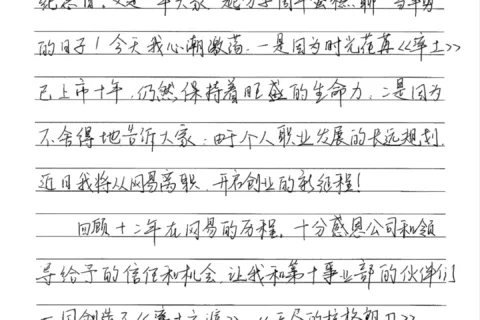 的日子！今天我心潮激荡，一是因为时光荏苒《率土》
已上市十年，仍然保持着旺盛的生命力；二是因为
不舍得地告诉大家：由于个人职业发展的长远规划，
近日我将从网易离职，开启创业的新征程！
回顾十二年在网易的历程，十分感恩公司和领
导给予的信任和机会，让我和第十事业部的伙伴们
一同创造了《率土之滨》、